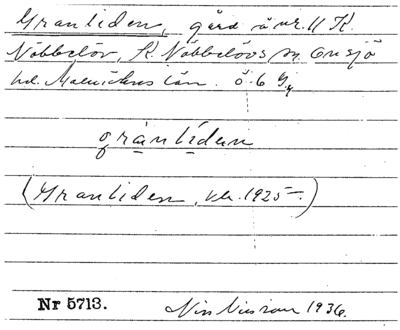 Granliden, gård å nr. 11 K.
Nöbbelöv, K. Nöbbelövs sn Onsjö
hd. Malmöhus län. ö. 6
grànlíden
(Granliden, 1925—.)
Nr 5713.
1936.